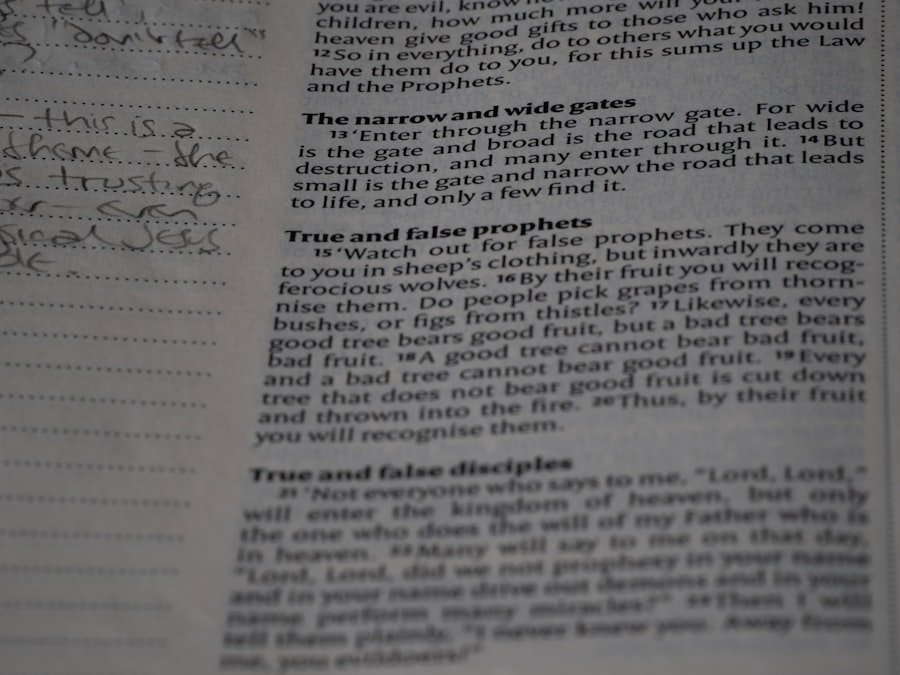 tell,
"don't tell"
- this is a
theme - the
trusting
even
Jesus
you are evil, know
children, how much more will your
heaven give good gifts to those who ask him!
12 So in everything, do to others what you would
have them do to you, for this sums up the Law
and the Prophets.
The narrow and wide gates
13 ‘Enter through the narrow gate. For wide
is the gate and broad is the road that leads to
destruction, and many enter through it. 14 But
small is the gate and narrow the road that leads
to life, and only a few find it.
True and false prophets
15 ‘Watch out for false prophets. They come
to you in sheep’s clothing, but inwardly they are
ferocious wolves. 16 By their fruit you will recog-
nise them. Do people pick grapes from thorn-
bushes, or figs from thistles? 17 Likewise, every
good tree bears good fruit, but a bad tree bears
bad fruit. 18 A good tree cannot bear bad fruit,
and a bad tree cannot bear good fruit. 19 Every
tree that does not bear good fruit is cut down
and thrown into the fire. 20 Thus, by their fruit
you will recognise them.
True and false disciples
21 ‘Not everyone who says to me, “Lord, Lord,”
will enter the kingdom of heaven, but only
the one who does the will of my Father who is
in heaven. 22 Many will say to me on that day,
“Lord, Lord, did we not prophesy in your name
and in your name drive out demons and in your
name perform many miracles?” 23 Then I will
tell them plainly, “I never knew you. Away from
me, you evildoers!”